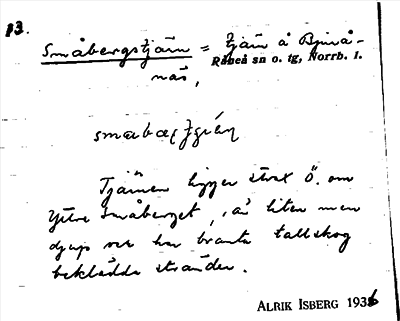 13.
Småbergstjärn = tjärn å Bjurå-
näs,
Råneå sn o. tg, Norrb. l.
Tjärnen ligger strax Ö. om
Yttre Småberget, är liten men
djup och har branta tallskog
beklädda stränder.
ALRIK ISBERG 1936